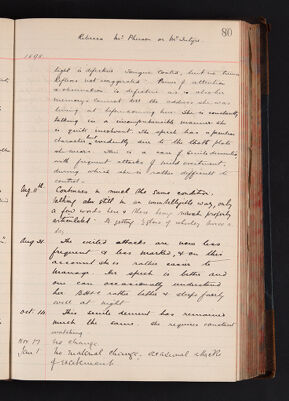 80
Rebecca McPherson or McIntyre
1898.
sight is defective. Tongue coated, but no tremor
Reflexes not exaggerated. Power of attention
& observation is defective as is also her
memory. Cannot tell the address she was
living at before coming here. She is constantly
talking in a incomprehensible manner and
is quite incoherent. The speech has a peculiar
character, evidently due to the tooth plate
she wears. This is a case of senile dementia
with frequent attacks of excitement,
during which she is rather difficult to
control.
Aug. 11th Continues in much the same condition,
talking still in an unintelligible way, only
a few words here & there being properly
articulated. Is getting of whisky twice a
day.
Aug 31. The excited attacks are now less
frequent & less marked, & on this
account she is rather easier to
manage. Her speech is better and
one can occasionally understand
her. rather better & sleeps fairly
well at night.
Oct. 14. This senile dement has remained
much the same. She requires constant
watching.
Nov 17 No change
Jan 1 No material change, occasional attacks
of excitement.